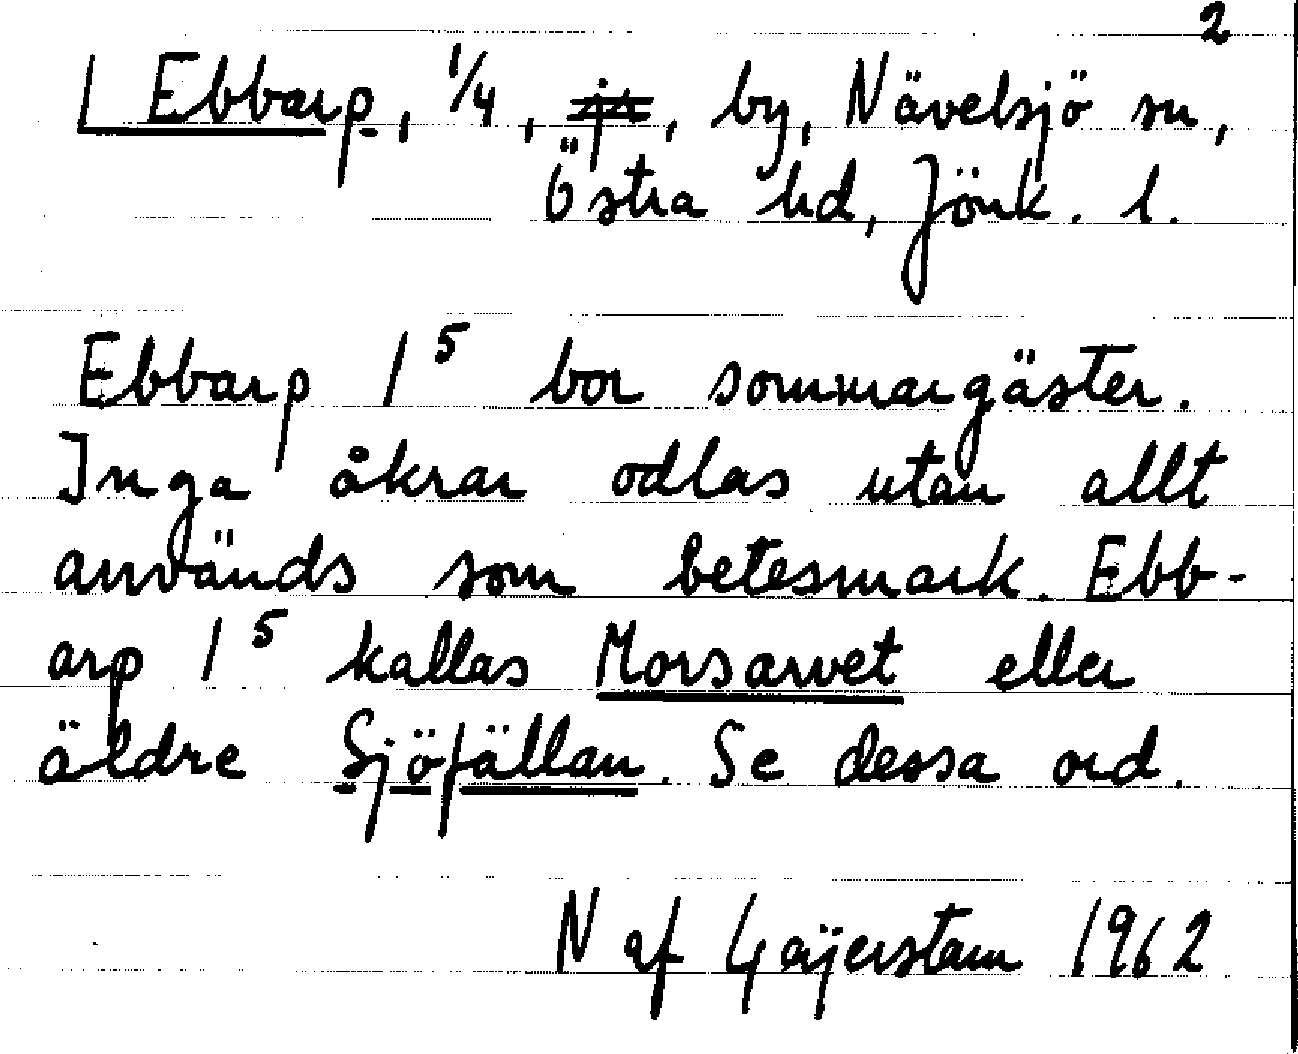 2
1 Ebbarp, 1/4, , by, Nävelsjö sn,
Östra hd, Jönk. l.
Ebbarp 1⁵ bor sommargäster.
Inga åkrar odlas utan allt
används som betesmark. Ebb-
arp 1⁵ kallas Morsarvet eller
äldre Sjöfällan. Se dessa ord.
N af Geijerstam 1962